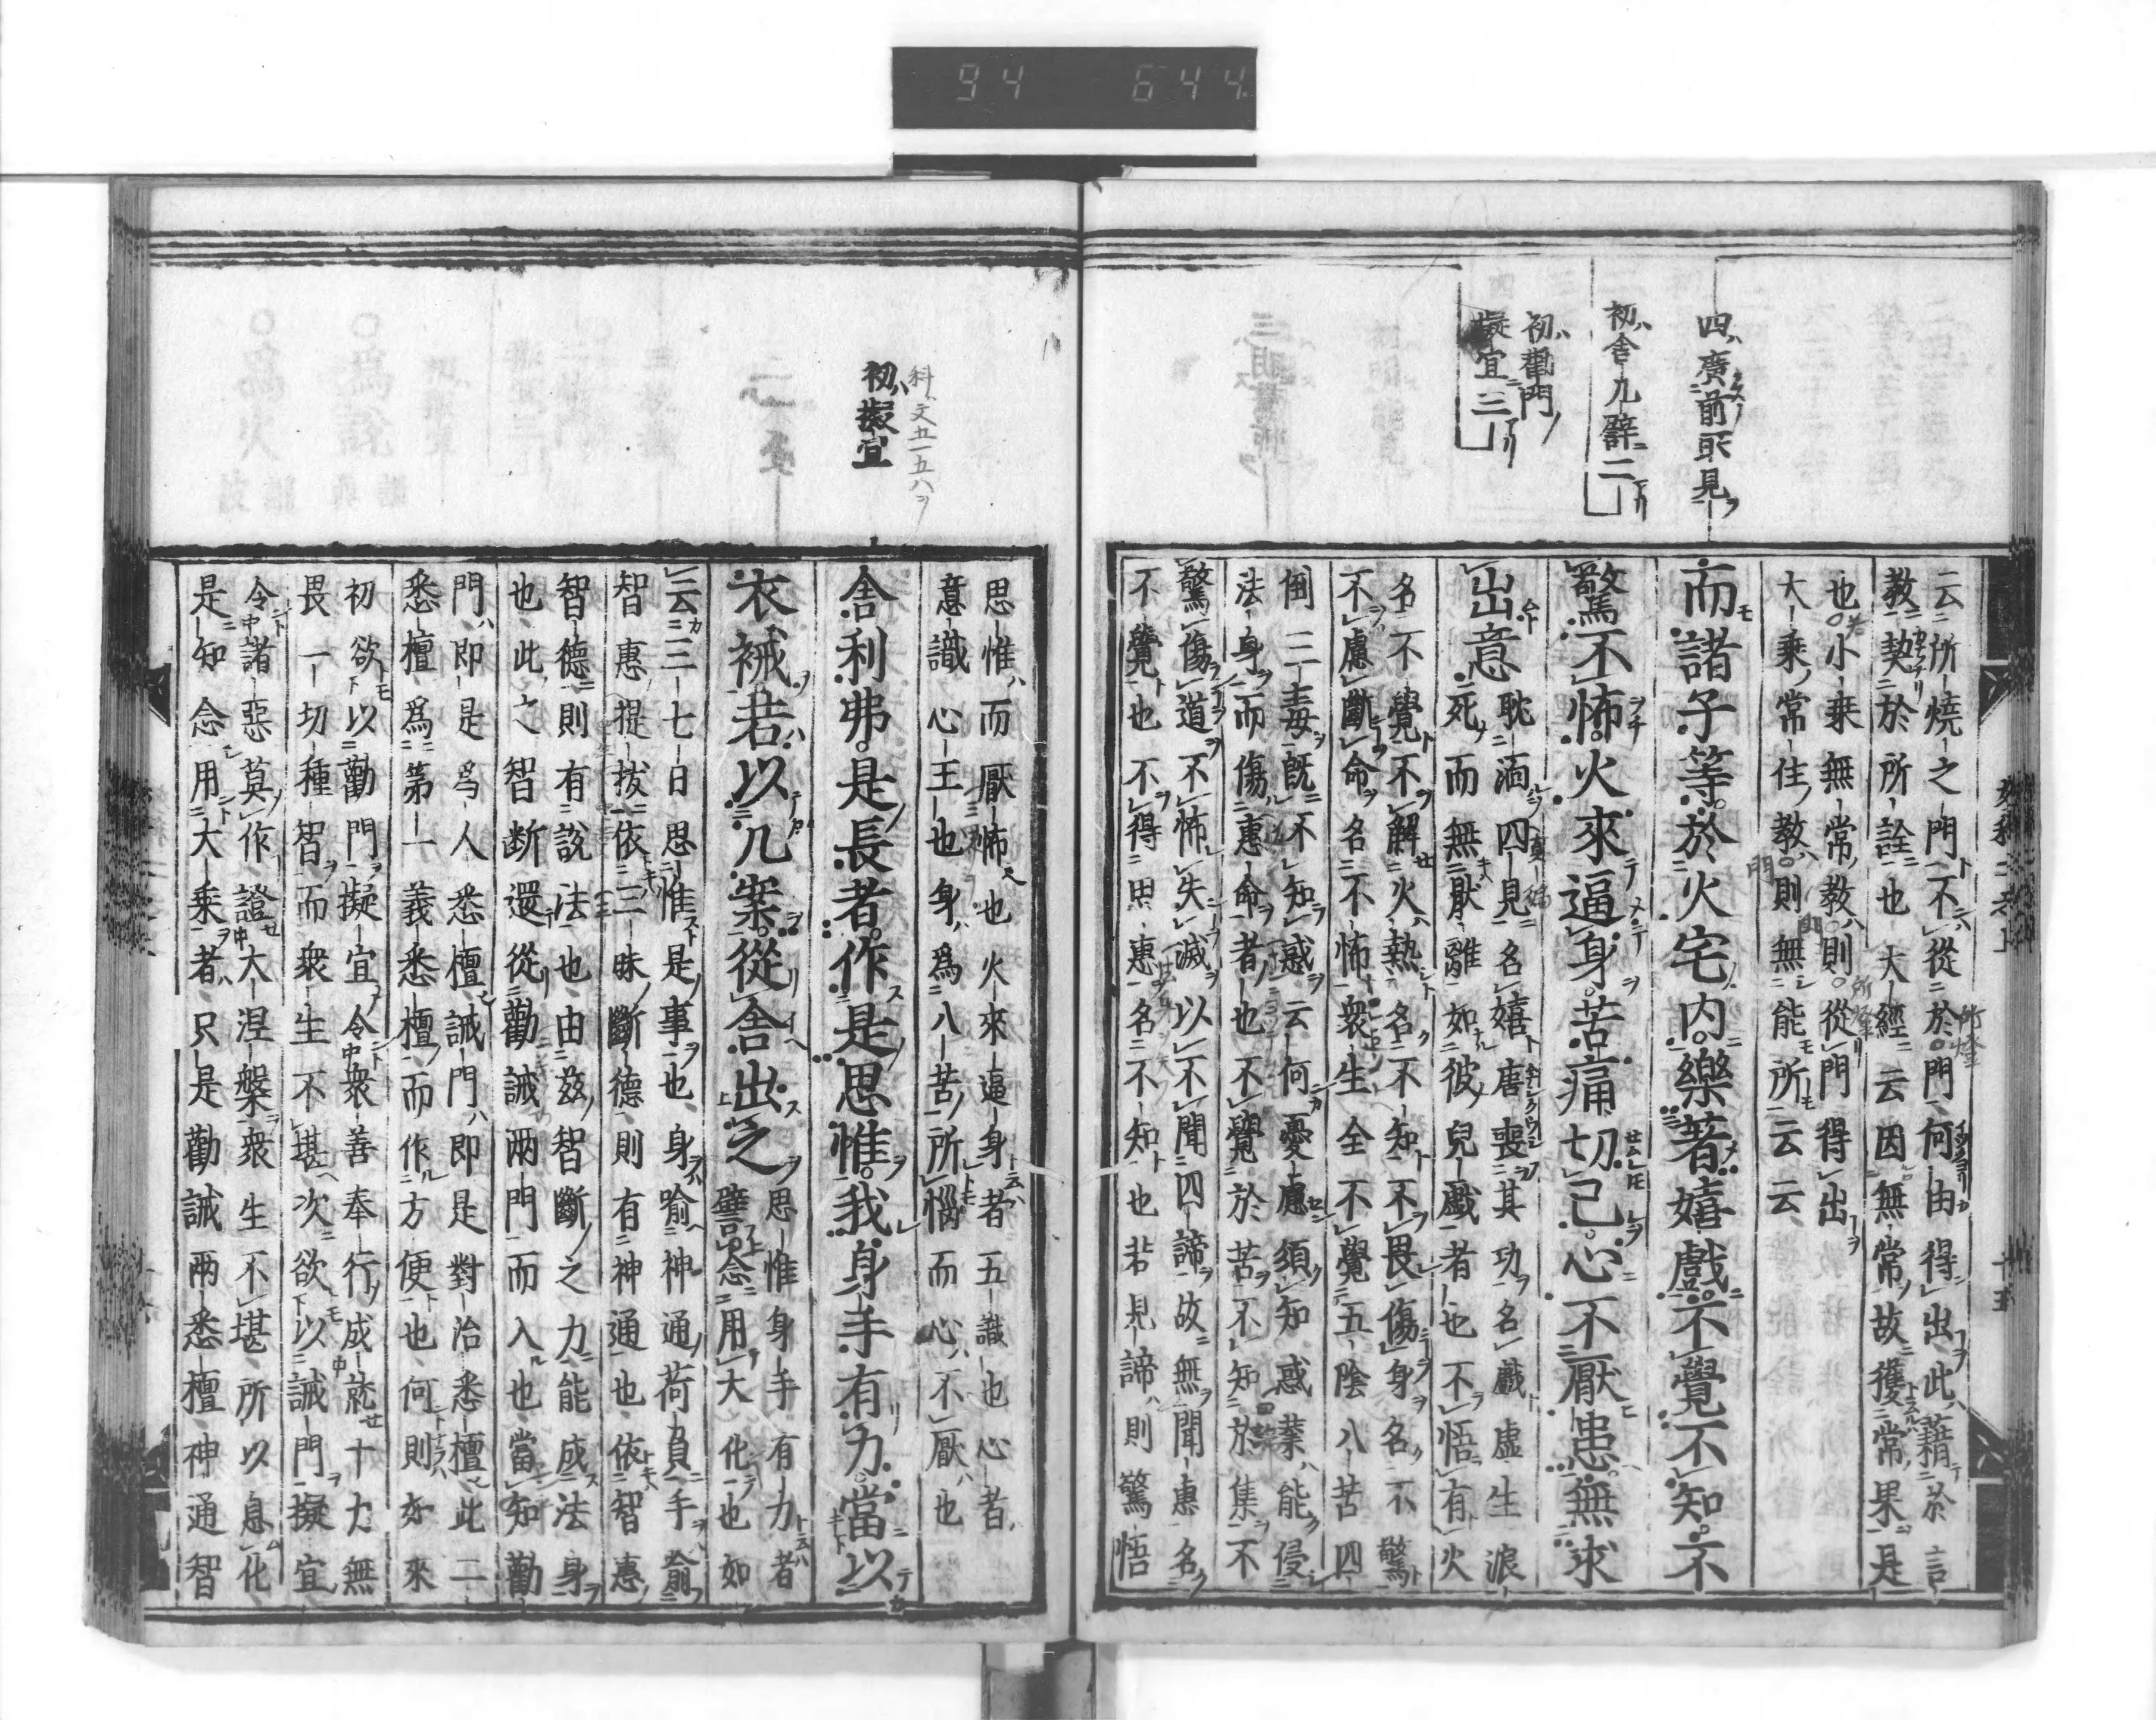 94 644
四廣前所見
初舍几辭二
初勸門
擬宜三
云所燒之門不從於門何由得出此藉於言
教契於所詮也大經云因無常故獲常果是
也小乘無常教則從門得出
大乘常住教則無能所云云
而諸子等於火宅內樂著嬉戲不覺不知不
驚不怖火來逼身苦痛切己心不厭患無求
出意
耽湎四見名嬉唐喪其功名戲虛生浪
死而無厭離如彼兒戲者也不悟有火
名不覺不解火熱名不知不畏傷身名不驚
不慮斷命名不怖眾生全不覺五陰八苦四
倒三毒既不知惑云何憂慮須知惑業能侵
法身而傷惠命者也不覺於苦不知於集不
驚傷道不怖失滅以不聞四諦故無聞惠名
不覺也不得思惠名不知也若見諦則驚悟
科文五ー五八ヲ
初擬宜
思惟而厭怖也火來逼身者五識也心者
意識心王也身為八苦所惱而心不厭也
舍利弗是長者作是思惟我身手有力當以
衣裓若以几案從舍出之
思惟身手有力者
譬念用大化也如
云三七日思惟是事也身喻神通荷負手喻
智惠提拔依三昧斷德則有神通也依智惠
智德則有說法也由茲智斷之力能成法身
也此之智斷還從勸誡兩門而入也當知勸
門即是為人悉檀誡門即是對治悉檀此二
悉檀為第一義悉檀而作方便也何則如來
初欲以勸門擬宜令眾善奉行成就十力無
畏一切種智而眾生不堪次欲以誡門擬宜
令諸惡莫作證大涅槃眾生不堪所以息化
是知念用大乘者只是勸誡兩悉檀神通智